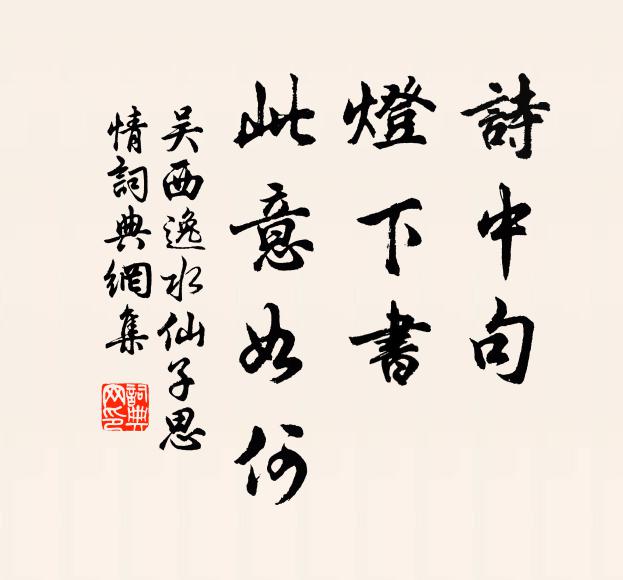 詩中句
燈下書
此意如何
吴西逸水仙子思
情詞典網集
詞典网印